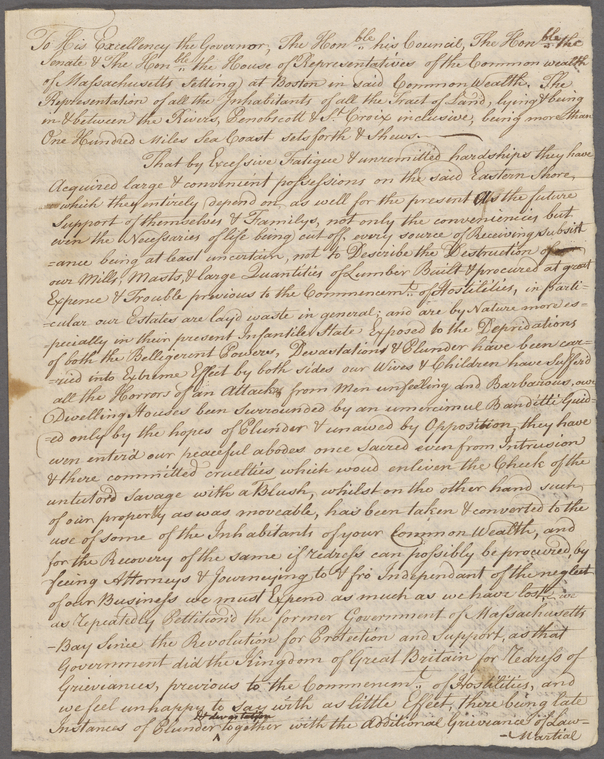 To His Excellency the Governor, The Honble his Council, The Honble the
Senate & The Honble the House of Representatives of the Common wealth
of Massachusetts Setting at Boston in said Common Wealth. The
Representation of all the Inhabitants of all the Tract of Land, lying & being
in & between the Rivers, Penobscott & St. Croix inclusive, being more than
One Hundred Miles Sea Coast sets forth & Shews.
That by Excessive Fatigue & unremitted hardships they have
Acquired large & convenient possessions on the said Eastern Shore,
=which they entirely Depend on, as well for the present As the future
support of themselves & Familys, not only the conveniencies but
even the Necessaries of life being cut off, every source of Receiving subsist
=ance being at least uncertain, not to Describe the Destruction of
our Mills, Masts, & large Quantities of Lumber Built & procured at great
Expence & Trouble previous to the Commencemt. of Hostilities, in Parti-
=cular our Estates are lay'd waste in general; and are by Nature more es-
=pecially in their present Infantile State Exposed to the Depridations
of both the Bellegerent Powers, Devastations & Plunder have been car-
=ried into Extreme Effect by both sides our Wives & Children have sufferd
all the Horrors of an Attack from Men unfeeling and Barbarous, our
Dwelling Houses been surrounded by an unmerciful Banditti Guid-
=ed only by the hopes of Plunder & unawed by Opposition, they have
even enterd our peaceful abodes once sacred even from Intrusion
& there committed cruelties which woud enliven the Cheek of the
untutord Savage with a Blush, whilst on the other hand such
of our property as was moveable, has been taken & converted to the
use of some of the Inhabitants of your Common Wealth, and
for the Recovery of the same if redress can possibly be procured, by
feeing Attorneys & Journeying to & fro Independant of the neglect
of our Business we must Expend as much as we have lost, we
as repeatedly Petitiond the former Government of Massachusetts
-Bay Since the Revolution for Protection and Support, as that
Government did the Kingdom of Great Britain for Redress of
Grieviances, previous to the Commencemt. of Hostilities, and
we feel unhappy to say with as little Effect, there being late
Instances of Plunder & devastation together with the Additional Grieviance of Law-
-Martial